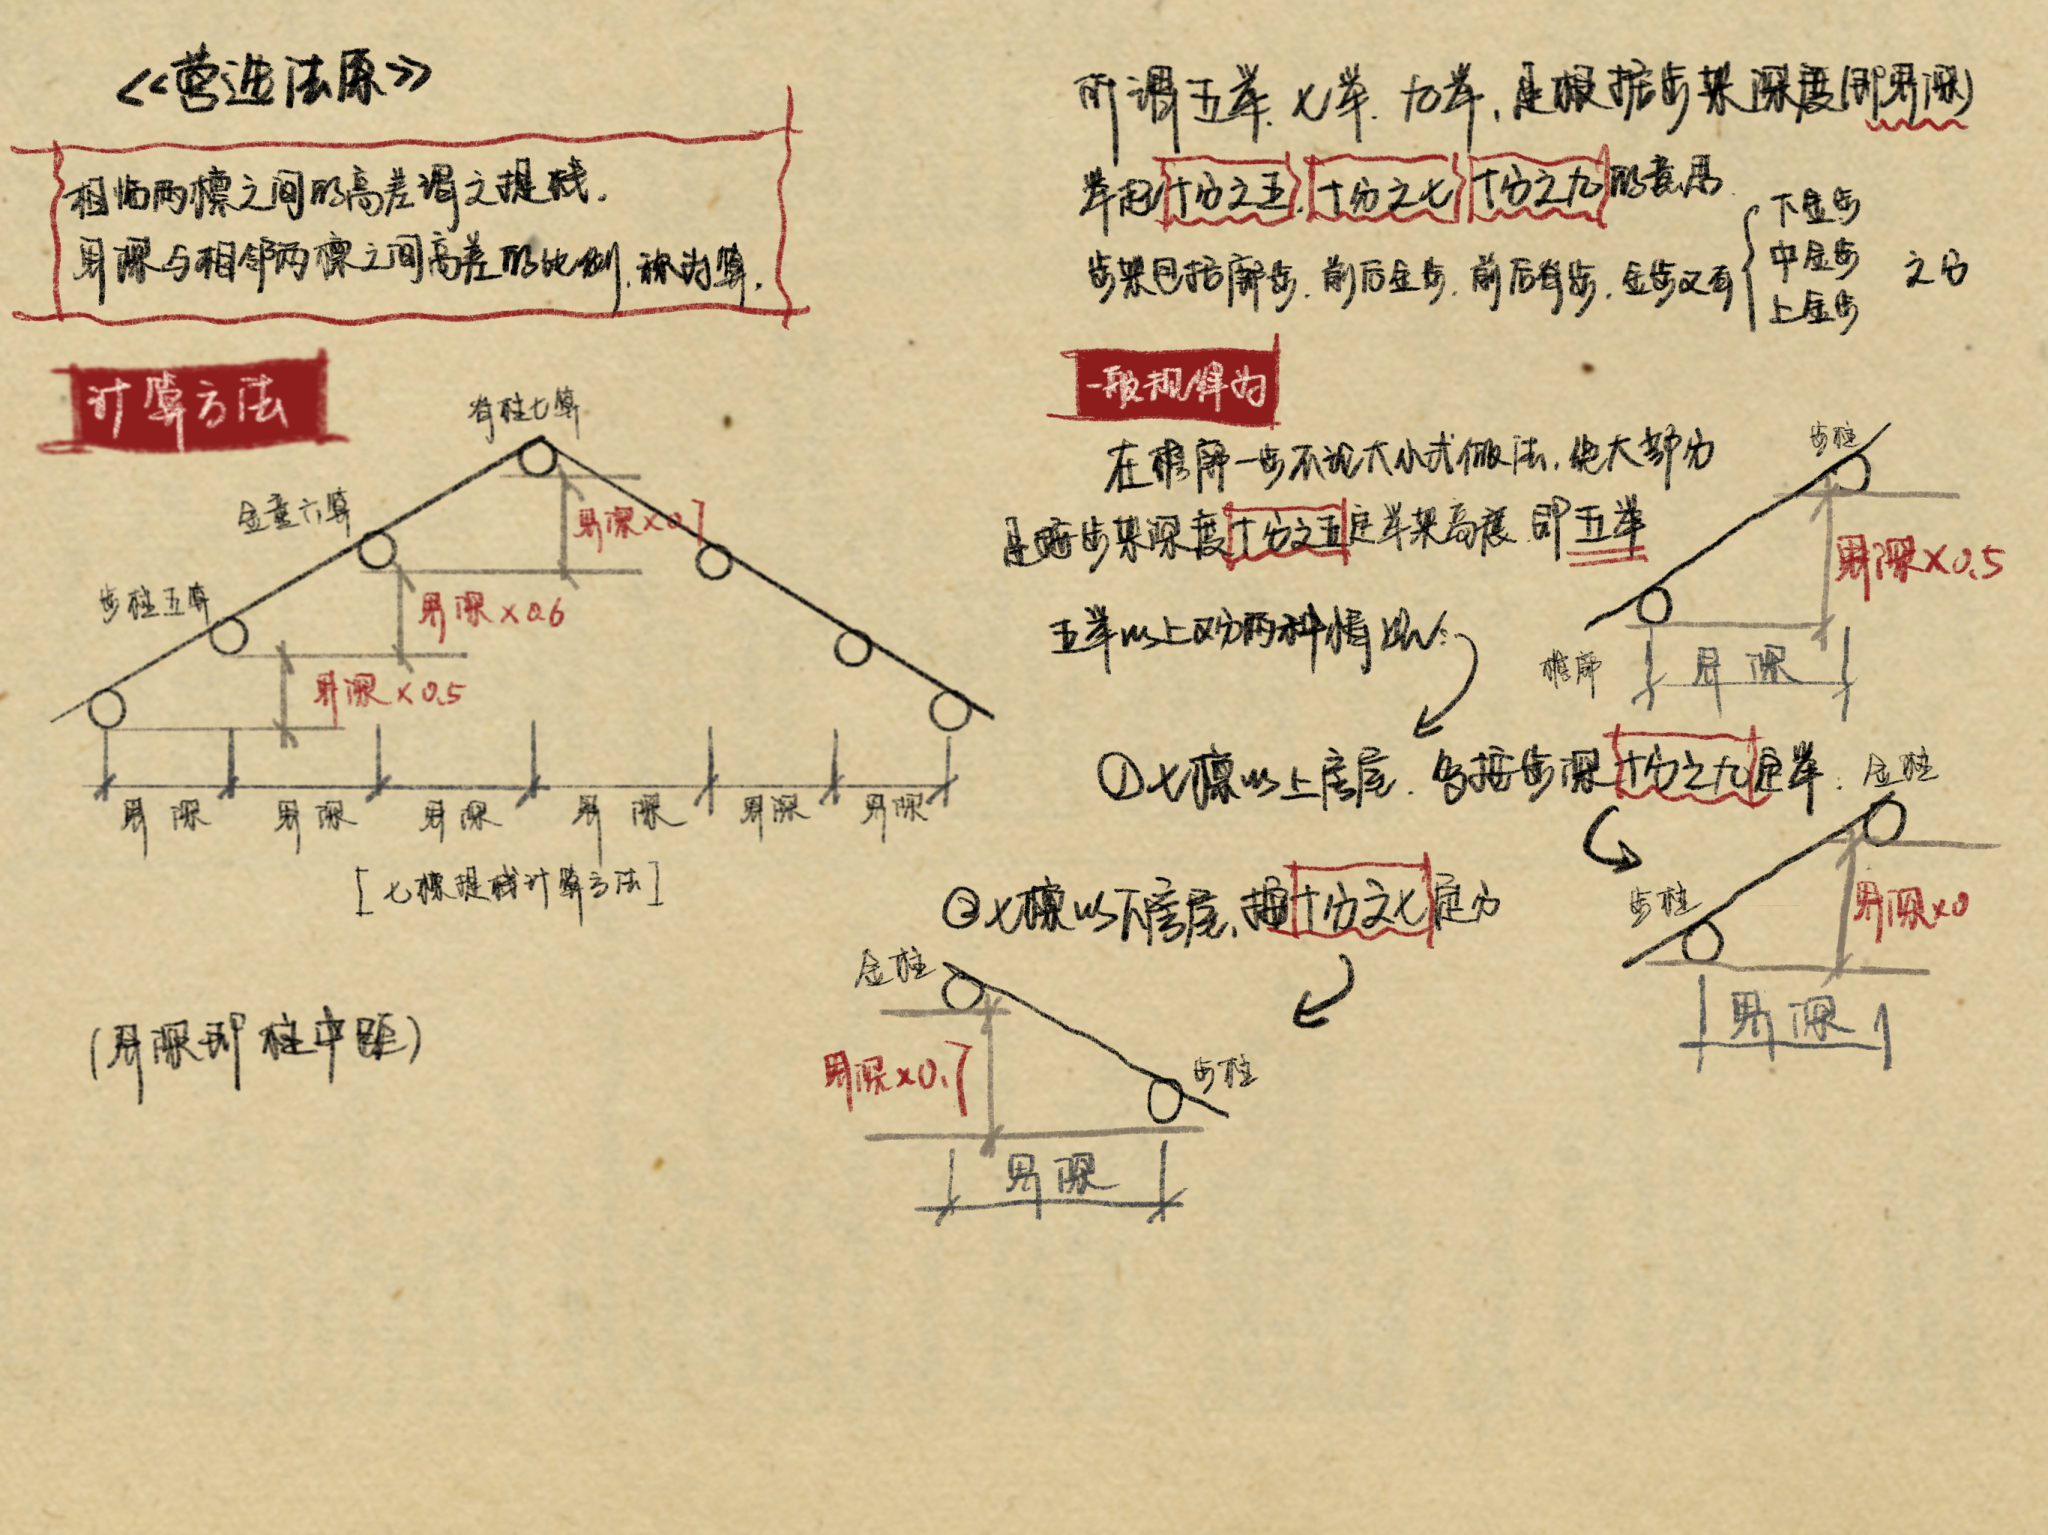 <<营造法原>>
相临两檩之间的高差谓之提栈.
界深与相邻两檩之间高差的比例,称为算.
计算方法
脊柱七算
金童六算
步柱五算
界深×0.7
界深×0.6
界深×0.5
界深 界深 界深 界深 界深 界深
[七檩提栈计算方法]
(界深即柱中距)
所谓五举.七举.九举,是根据步架深度(即界深)
举起十分之五,十分之七,十分之九的意思.
步架包括廊步.前后金步.前后脊步.金步又有
下金步
中金步
上金步
之分
一般规律为
在檐廊一步不论大小式做法,绝大部分
是按步架深度十分之五定举架高度.即五举
步柱
界深×0.5
檐廊
界深
五举以上又分两种情况:
①七檩以上房屋.多按步深十分之九定举.
金柱
步柱
界深×0
界深
②七檩以下房屋,按十分之七定分
金柱
步柱
界深×0.7
界深